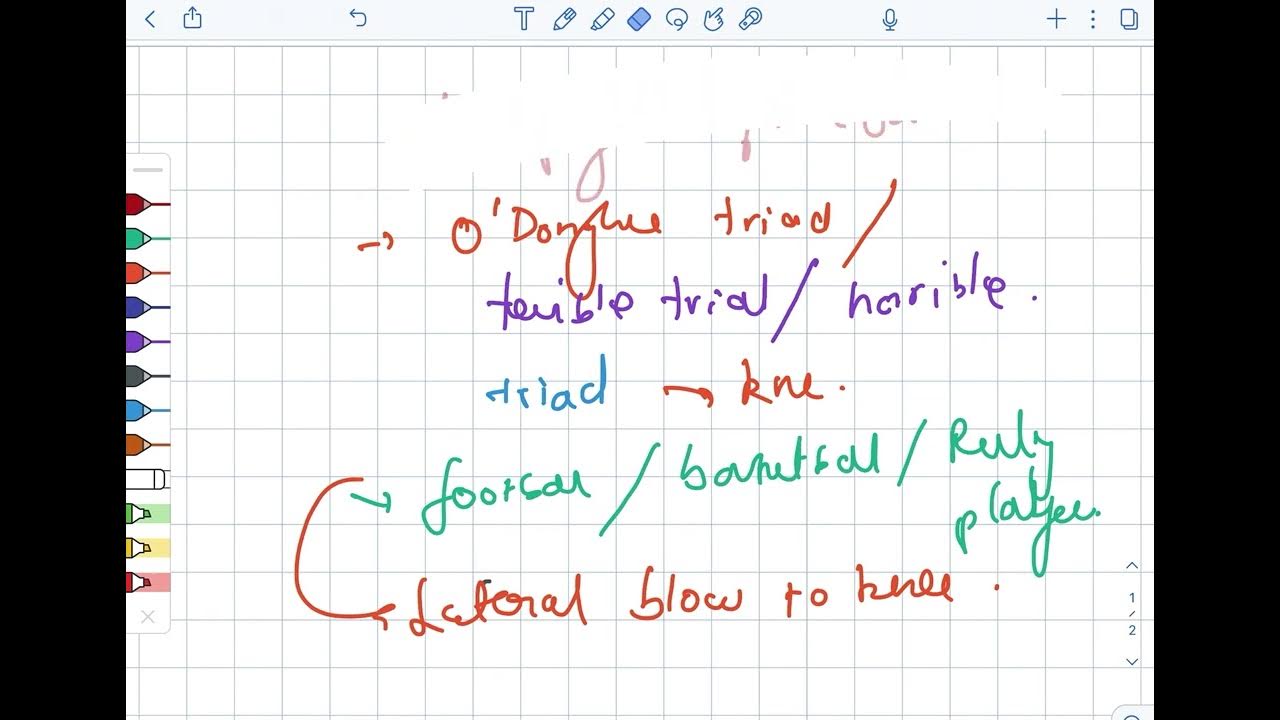 → O'Donghue triad /
terible trial / horible.
triad → knee.
→ football / basketball / Rugby
player.
Lateral blow to knee.
1
/
2